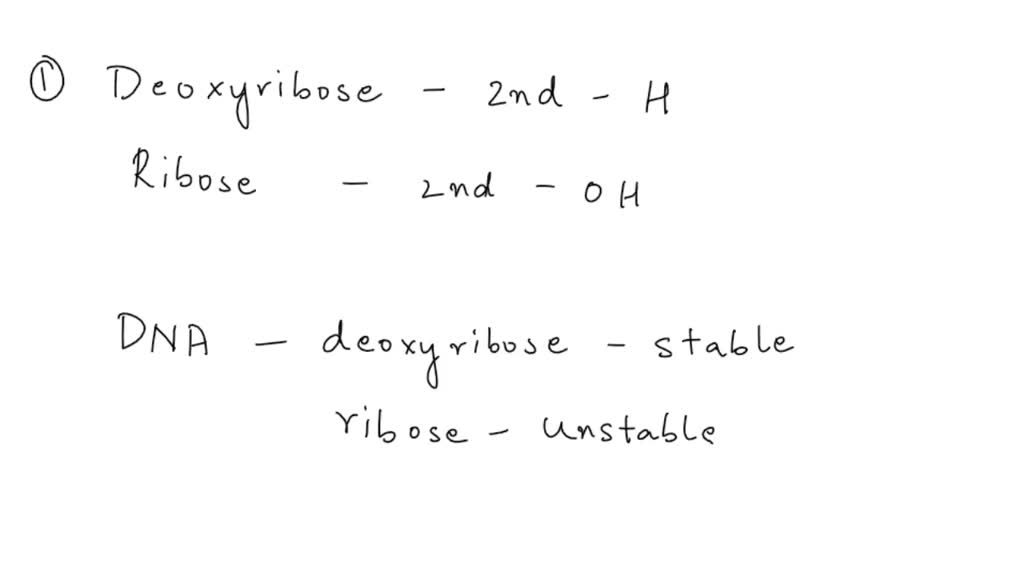 ① Deoxyribose - 2nd - H
Ribose - 2nd - OH
DNA - deoxyribose - stable
ribose - unstable